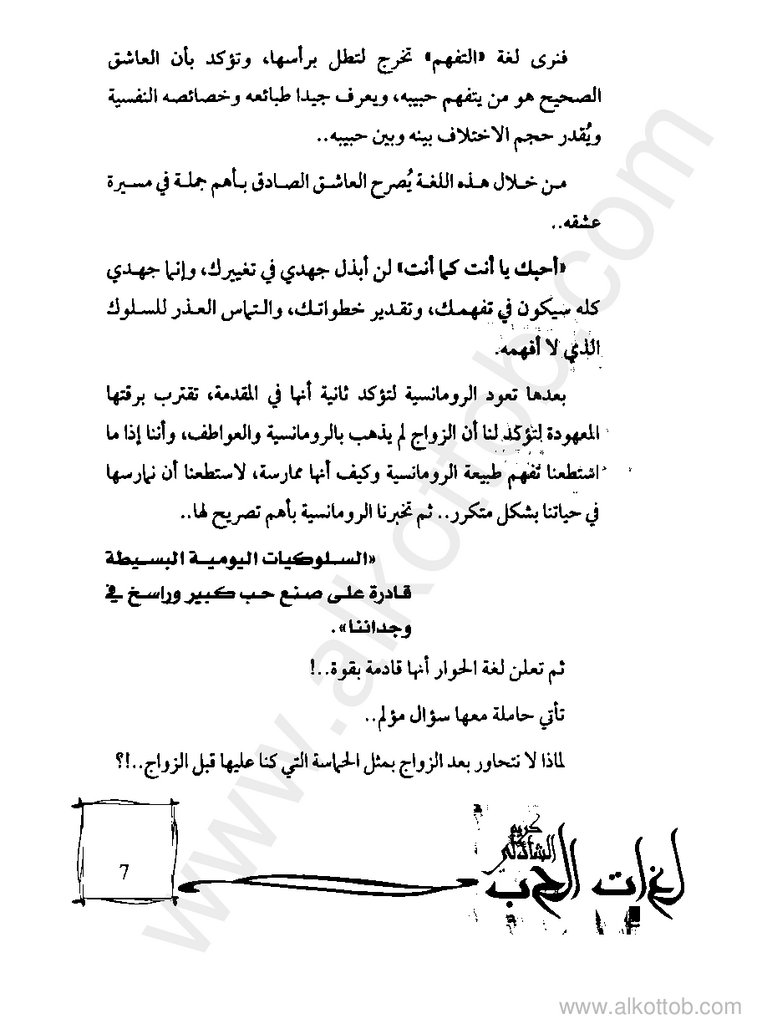 فنرى لغة «التفهم» تخرج لتطل برأسها، وتؤكد بأن العاشق
الصحيح هو من يتفهم حبيبه، ويعرف جيدا طبائعه وخصائصه النفسية
ويُقدر حجم الاختلاف بينه وبين حبيبه..
من خلال هذه اللغة يُصرح العاشق الصادق بأهم جملة في مسيرة
عشقه..
«أحبك يا أنت كما أنت» لن أبذل جهدي في تغييرك، وإنما جهدي
كله سيكون في تفهمك، وتقدير خطواتك، والتماس العذر للسلوك
الذي لا أفهمه.
بعدها تعود الرومانسية لتؤكد ثانية أنها في المقدمة، تقترب برقتها
المعهودة لتؤكد لنا أن الزواج لم يذهب بالرومانسية والعواطف، وأننا إذا ما
استطعنا تفهم طبيعة الرومانسية وكيف أنها ممارسة، لاستطعنا أن نمارسها
في حياتنا بشكل متكرر.. ثم تخبرنا الرومانسية بأهم تصريح لها..
«السلوكيات اليومية البسيطة
قادرة على صنع حب كبير وراسخ في
وجداننا».
ثم تعلن لغة الحوار أنها قادمة بقوة..!
تأتي حاملة معها سؤال مؤلم..
لماذا لا نتحاور بعد الزواج بمثل الحماسة التي كنا عليها قبل الزواج..!؟
كريم
الشاذلي
لغات الحب
7
www.alkottob.com
www.alkottob.com